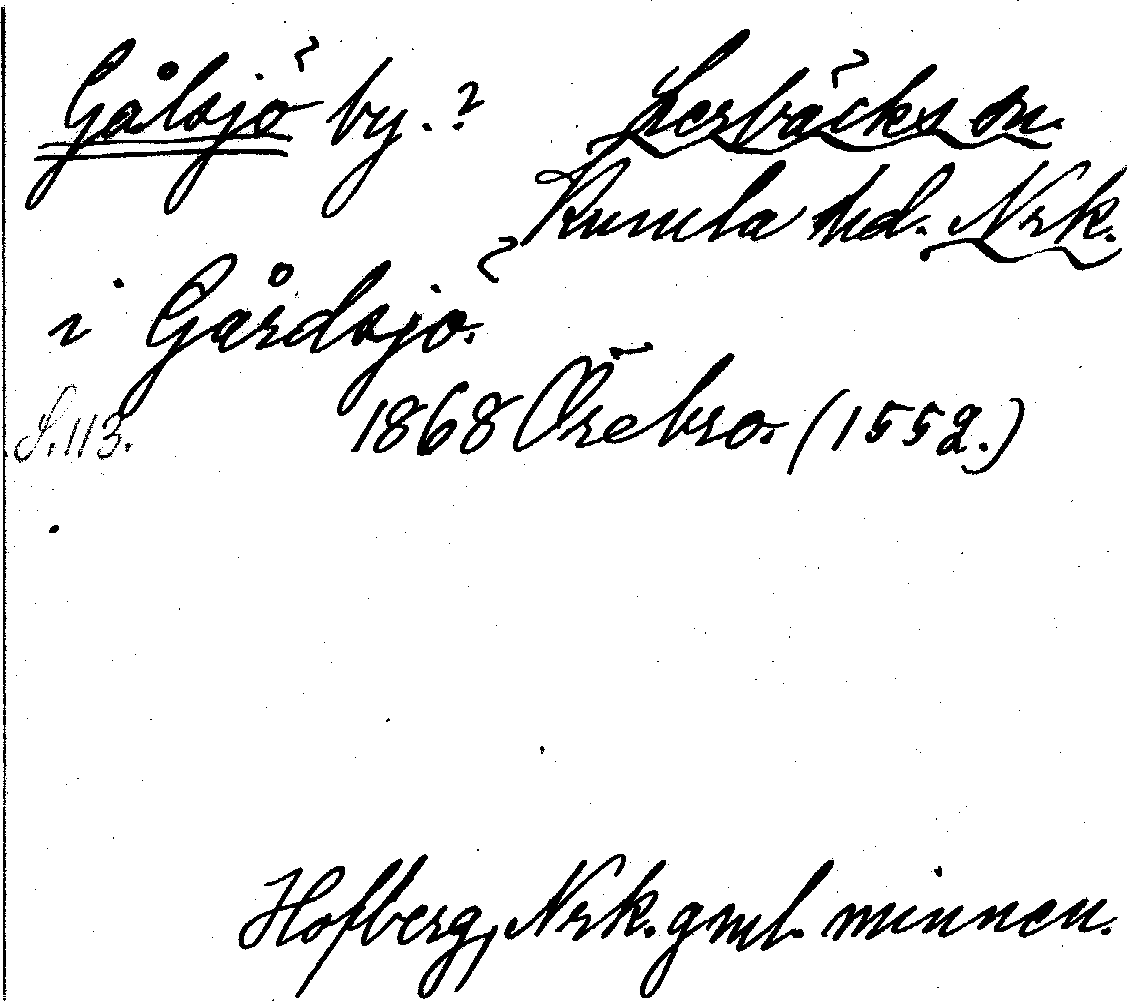 Gålsjö by.? Lerbäcks sn.
Kumla hd. Nrk.
i Gårdsjö.
S. 113. 1868 Örebro. (1552.)
Hofberg, Nrk. gml. minnen.